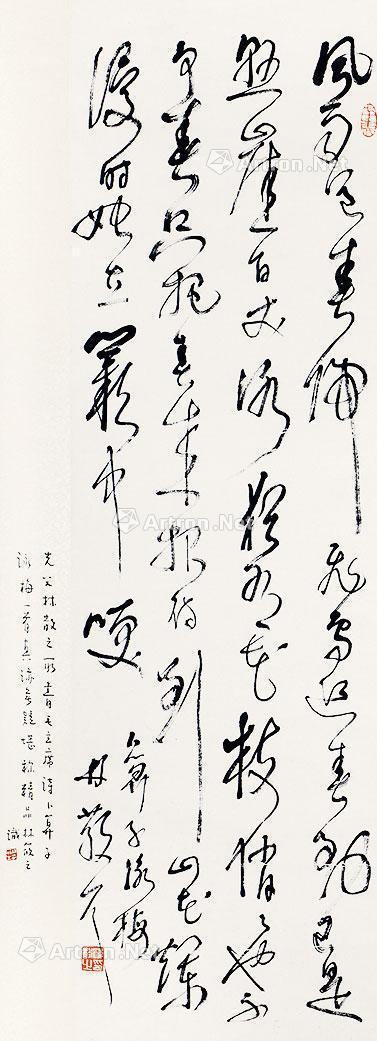 風雨送春歸飛雪迎春到已是
懸崖百丈冰猶有花枝俏俏也不
爭春只把春來報待到山花爛
漫時她在叢中笑
卜算子詠梅
林散之
先父林散之所書毛主席詩卜算子
詠梅一首真迹無疑堪稱精品林筱之
識
Artron.Net
Artron.Net
Artron.Net
Artron.Net
Artron.Net
Artron.Net